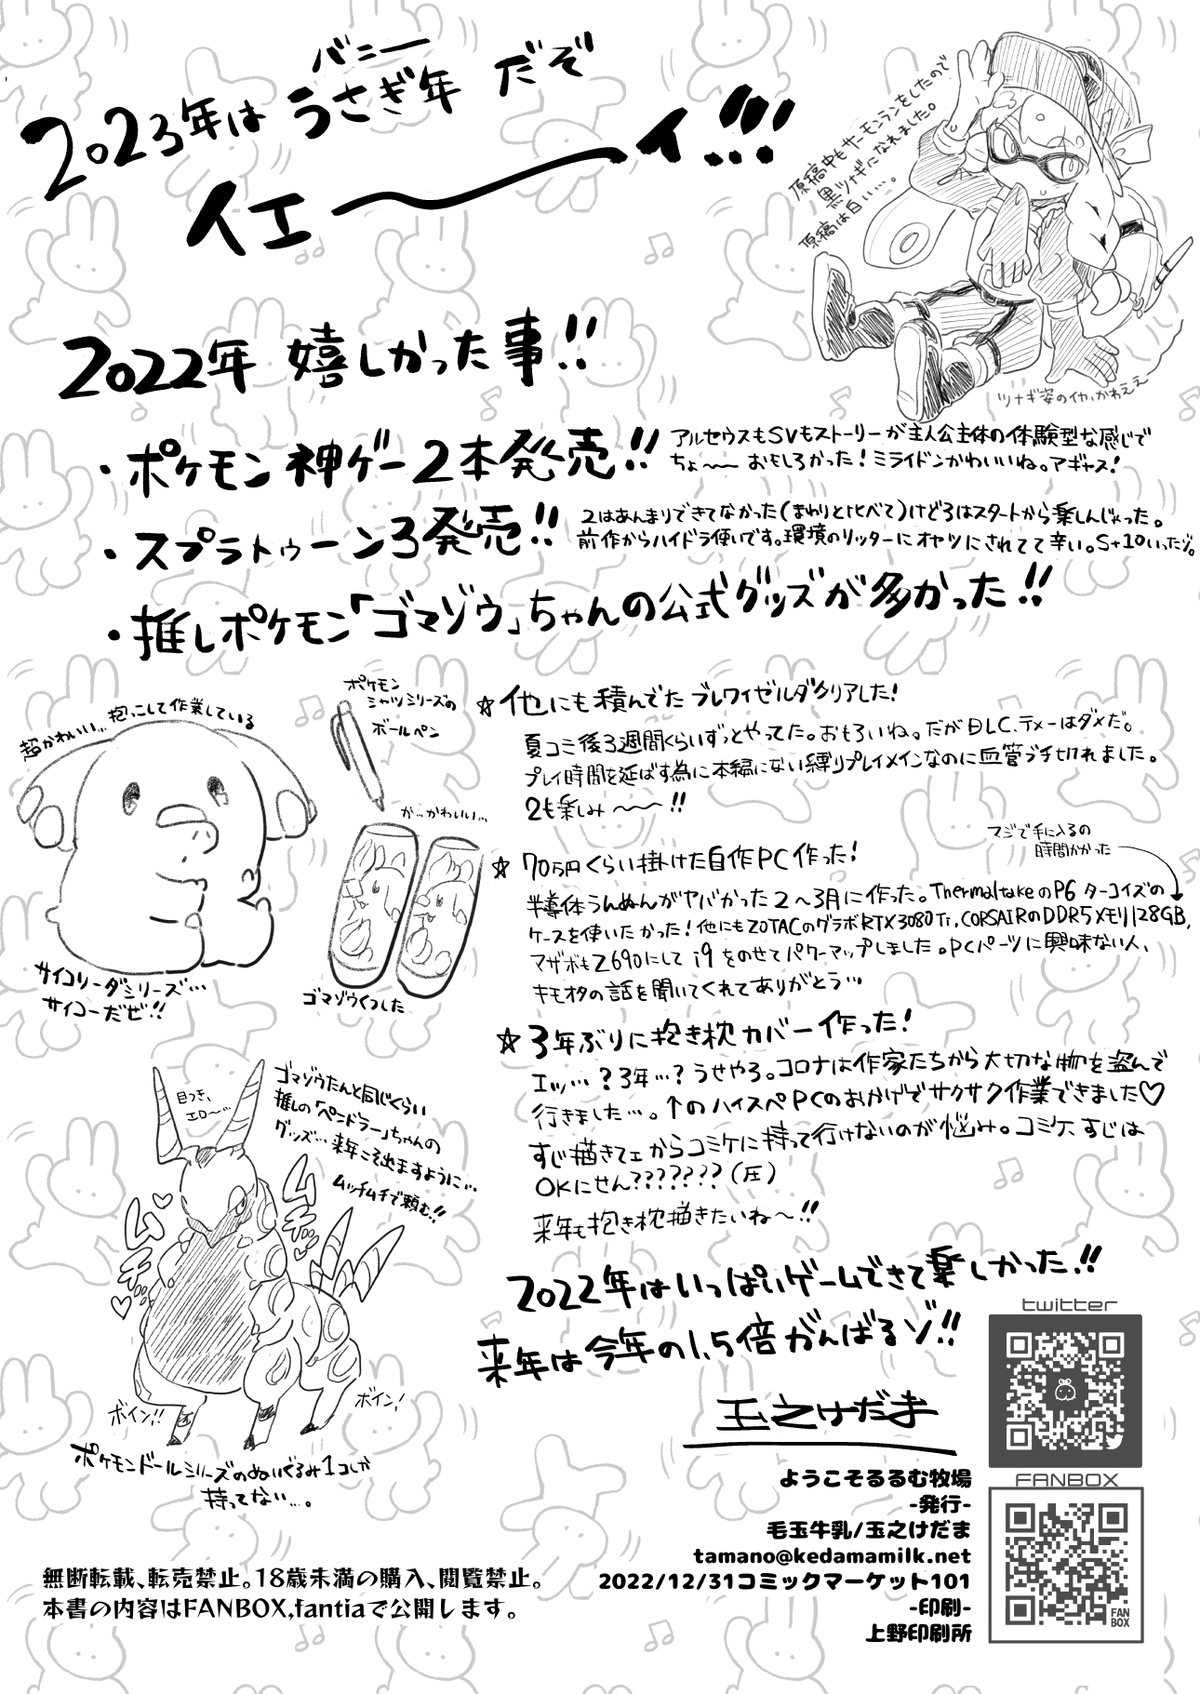 2023年は うさぎ年 だぞ
バニー
イエ〜〜イ!!!
原稿中もサーモンランをしたので
黒ツナギになれました。
原稿は白い…。
ツナギ姿のイカ、かわええ
2022年 嬉しかった事!!
・ポケモン神ゲー2本発売!!
アルセウスもSVもストーリーが主人公主体の体験型な感じで
ちょ〜〜 おもしろかった!ミライドンかわいいね。アギャス!
・スプラトゥーン3発売!!
2はあんまりできてなかった(まわりと比べて)けど3はスタートから楽しんじゃった。
前作からハイドラ使いです。環境のリッターにオヤツにされてて辛い。S+10いったゾ。
・推しポケモン「ゴマゾウ」ちゃんの公式グッズが多かった!!
超かわいい…抱っこして作業している
サイコソーダシリーズ…
サイコーだぜ!!
ポケモン
シャツシリーズの
ボールペン
か…かわいい…
ゴマゾウくつした
☆他にも積んでた ブレワイゼルダクリアした!
夏コミ後3週間くらいずっとやってた。おもろいね。だがDLC、テメーはダメだ。
プレイ時間を延ばす為に本編にない縛りプレイメインなのに血管ブチ切れました。
2も楽しみ〜〜!!
☆70万円くらい掛けた自作PC作った!
マジで手に入るの
時間かかった
半導体うんぬんがヤバかった2〜3月に作った。ThermaltakeのP6 ターコイズの
ケースを使いたかった!他にもZOTACのグラボRTX3080Ti、CORSAIRのDDR5メモリ128GB、
マザボもZ690にして i9をのせてパワーマップしました。PCパーツに興味ない人、
キモオタの話を聞いてくれてありがとう…
☆3年ぶりに抱き枕カバー作った!
エッ…?3年…?うせやろ。コロナは作家たちから大切な物を盗んで
行きました…。↑のハイスペPCのおかげでサクサク作業できました♡
すじ描きてェからコミケに持って行けないのが悩み。コミケ、すじは
OKにせん???????(圧)
来年も抱き枕描きたいね〜!!
目つき、
エロ〜…
ゴマゾウたんと同じくらい
推しの「ペンドラー」ちゃんの
グッズ…来年こそ出ますように…
ムッチムチで頼む!!
ムチッ♡
ムチッ♡
ムチッ
ボイン!!
ボイン!
ポケモンドールシリーズのぬいぐるみ1コしか
持ってない…。
2022年はいっぱいゲームできて楽しかった!!
来年は今年の1.5倍がんばるゾ!!
玉之けだま
twitter
FANBOX
FAN
BOX
ようこそるるむ牧場
-発行-
毛玉牛乳/玉之けだま
tamano@kedamamilk.net
2022/12/31コミックマーケット101
-印刷-
上野印刷所
無断転載、転売禁止。18歳未満の購入、閲覧禁止。
本書の内容はFANBOX,fantiaで公開します。